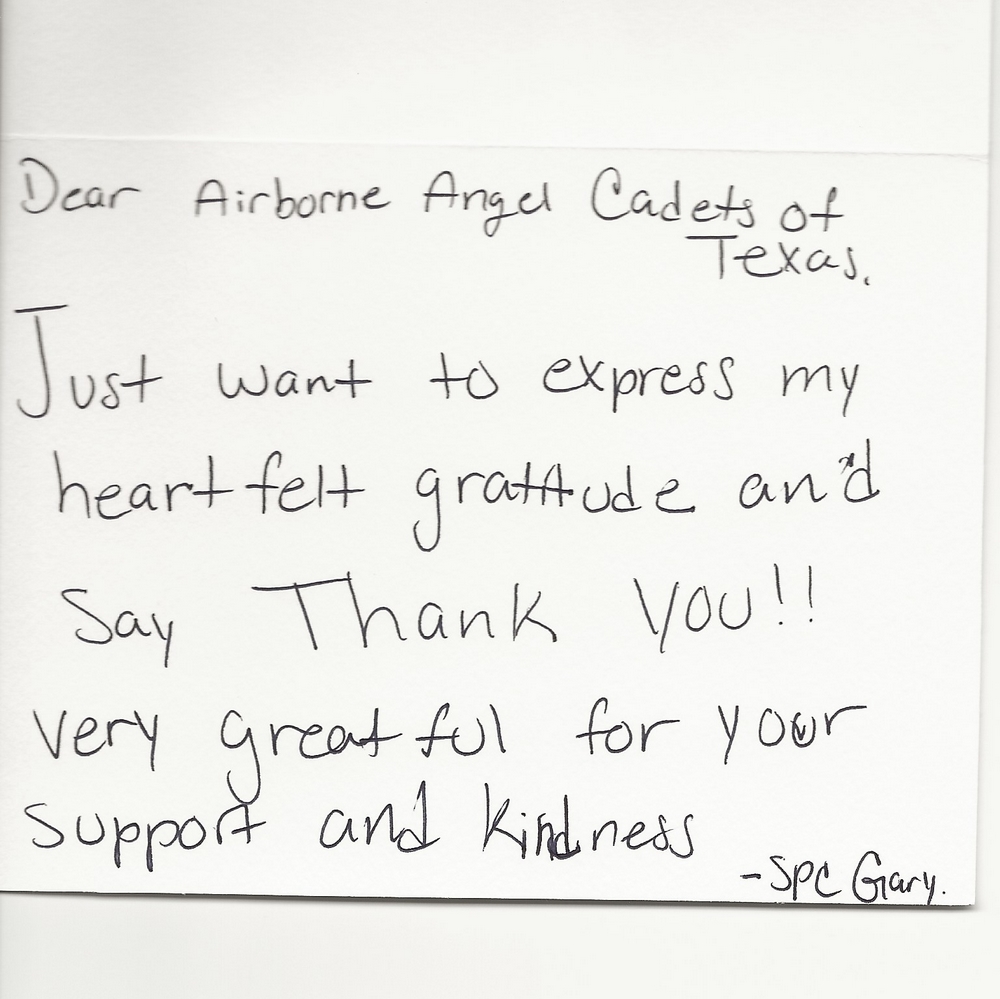 Dear Airborne Angel Cadets of
Texas.
Just want to express my
heartfelt gratitude and
Say Thank You!!
very greatful for your
support and kindness
-SPC Gary.